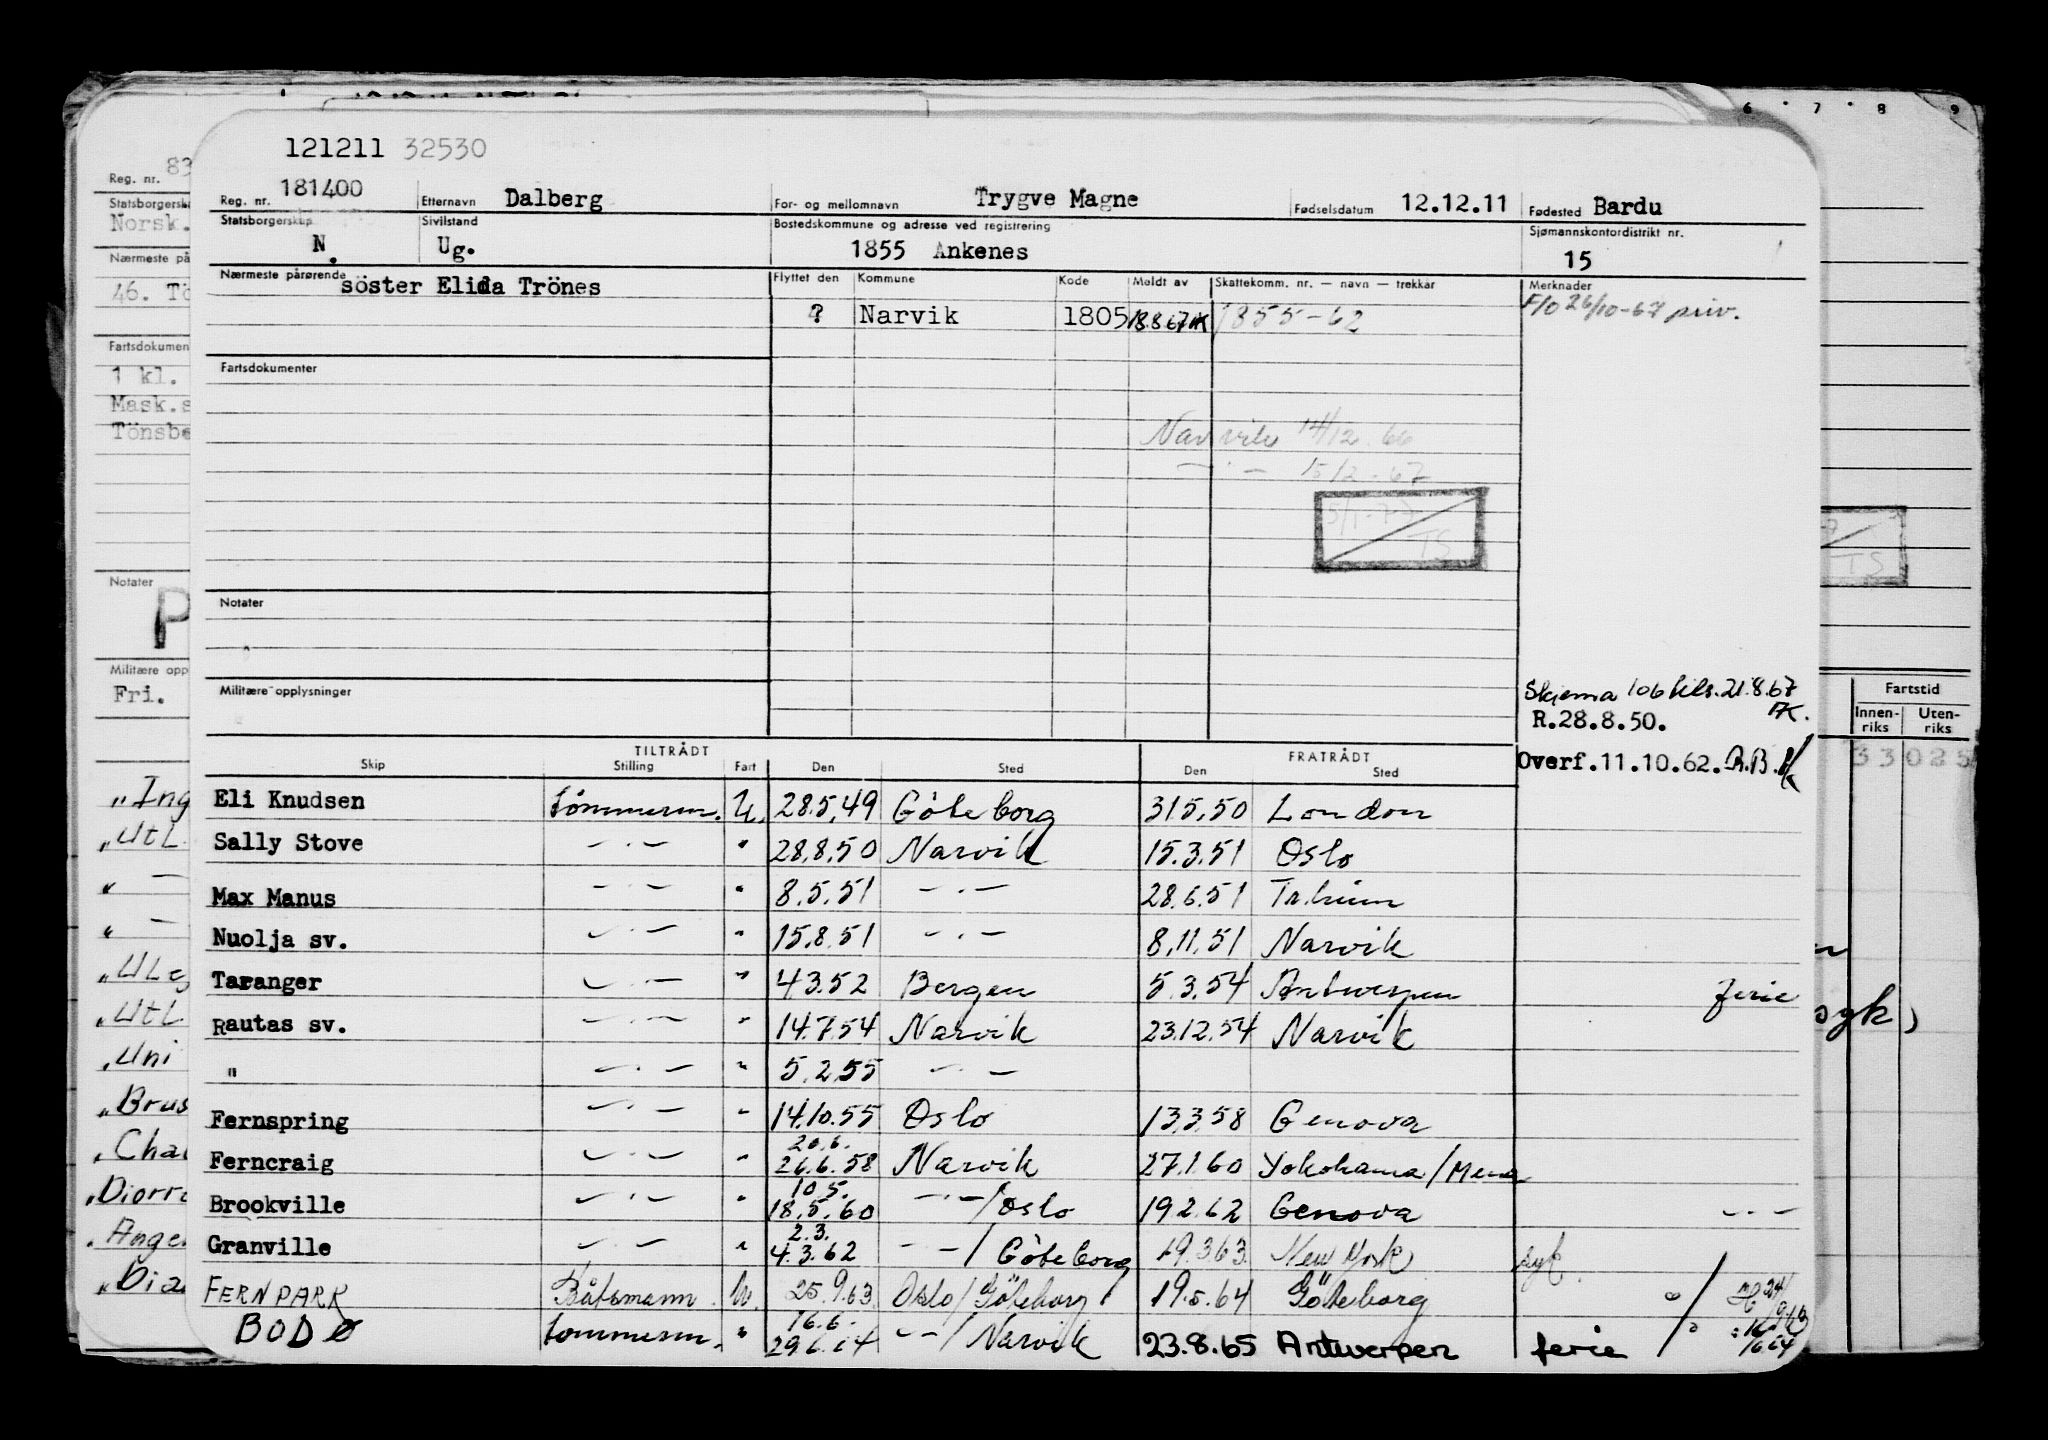 6 7 8 9
121211 32530
Reg. nr. 83
Reg. nr. 181400 Etternavn Dalberg For- og mellomnavn Trygve Magne Fødselsdatum 12.12.11 Fødested Bardu
Statsborgersk
Norsk.
Statsborgerskap N. Sivilstand Ug. Bostedskommune og adresse ved registrering 1855 Ankenes Sjømannskontordistrikt nr. 15
Nærmeste på
46. Tö
Nærmeste pårørende söster Elida Trönes Flyttet den Kommune Kode Meldt av Skattekomm. nr. — navn — trekkår Merknader
? Narvik 1805 18.8.67 1855-62 F/O 26/10-67 priv.
Fartsdokumen
1 kl.
Mask.s
Tönsbe
Fartsdokumenter
Narvik 14/12.66
—·— 15/2-67
TS
TS
Notater
P
Notater
Militære opp
Fri.
Militære opplysninger
Skjema 106 tils. 21.8.67
R.28.8.50.
Overf.11.10.62. R.B.
Fartstid
Innen-riks Uten-riks
33 025
TILTRÅDT FRATRÅDT
Skip Stilling Fart Den Sted Den Sted
"Ing
Eli Knudsen tömmerm. U. 28.5.49 Göteborg 31.5.50 London
"Utl.
Sally Stove —·— " 28.8.50 Narvik 15.3.51 Oslo
" —
Max Manus —·— " 8.5.51 —·— 28.6.51 Tr.heim
" —
Nuolja sv. —·— " 15.8.51 —·— 8.11.51 Narvik
Taranger —·— " 4.3.52 Bergen 5.3.54 Antwerpen ferie
"Utl.
Rautas sv. —·— " 14.7.54 Narvik 23.12.54 Narvik
syk)
"Uni
" —·— " 5.2.55 —·—
"Brus
Fernspring —·— " 14.10.55 Oslo 13.3.58 Genova
"Cha
Ferncraig —·— " 20.6. 26.6.58 Narvik 27.1.60 Yokohama/Mena
"Diorr
Brookville —·— " 10.5. 18.5.60 —·—/Oslo 19.2.62 Genova —·—
"Ange
Granville —·— " 2.3. 4.3.62 —·—/Göteborg 19.3.63 New York syk.
"Dia
FERNPARK Båtsmann U. 25.9.63 Oslo/Göteborg 19.5.64 Göteborg
BODØ tömmerm. " 16.6. 29.6.64 —·—/Narvik 23.8.65 Antwerpen ferie